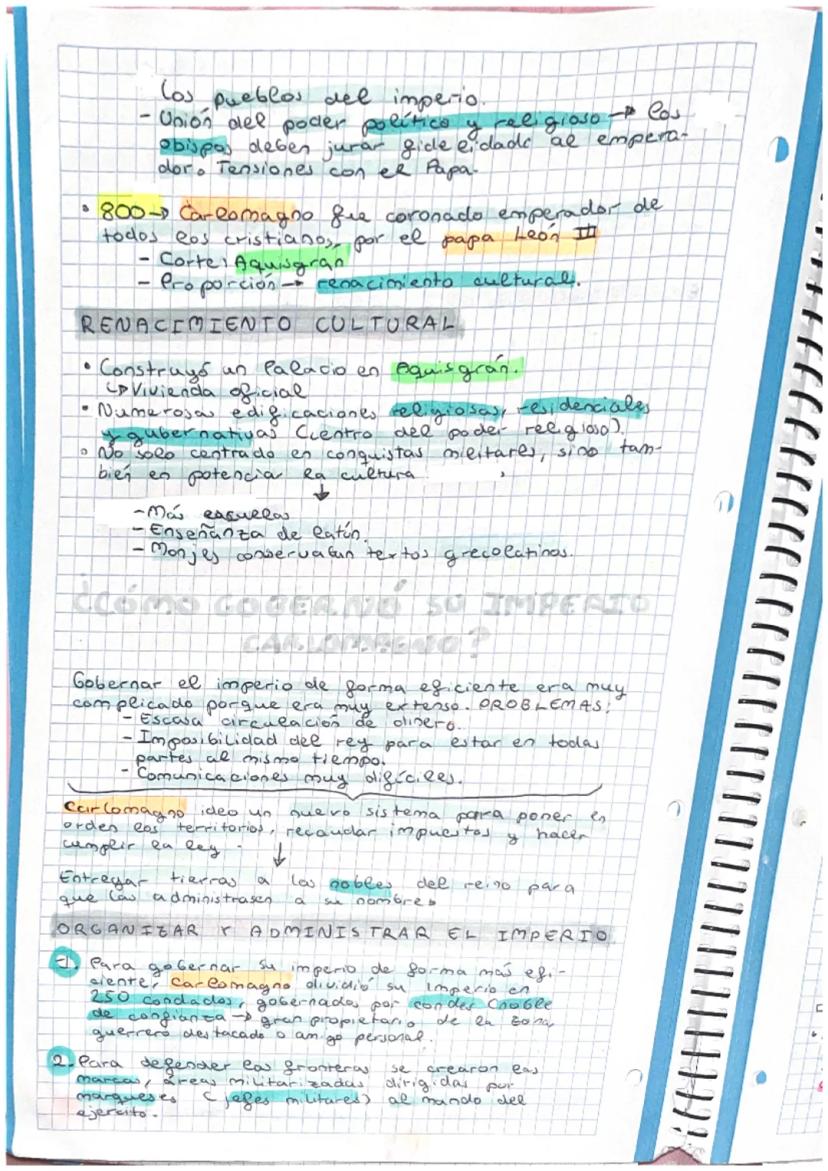 los pueblos del imperio.
- Unión del poder político y religioso → los
obispos deben jurar fidelidad al empera-
dor. Tensiones con el Papa.
• 800 → Carlomagno fue coronado emperador de
todos los cristianos, por el papa León III
- Corte: Aquisgrán
- Proporción → renacimiento cultural.
RENACIMIENTO CULTURAL
• Construyó un Palacio en Aquisgrán.
↳ Vivienda oficial
• Numerosas edificaciones religiosas, residenciales
y gubernativas (centro del poder religioso).
• No solo centrado en conquistas militares, sino tam-
bién en potenciar la cultura
↓
- Más escuelas
- Enseñanza de latín.
- Monjes conservaban textos grecolatinos.
¿CÓMO GOBERNÓ SU IMPERIO
CARLOMAGNO?
Gobernar el imperio de forma eficiente era muy
complicado porque era muy extenso. PROBLEMAS:
- Escasa circulación de dinero.
- Imposibilidad del rey para estar en todas
partes al mismo tiempo.
- Comunicaciones muy difíciles.
Carlomagno ideo un nuevo sistema para poner en
orden los territorios, recaudar impuestos y hacer
cumplir la ley.
↓
Entregar tierras a los nobles del reino para
que las administrasen a su nombre.
ORGANIZAR Y ADMINISTRAR EL IMPERIO
1. Para gobernar su imperio de forma más efi-
ciente, Carlomagno dividió su imperio en
250 condados, gobernados por condes (noble
de confianza → gran propietario de la zona,
guerrero destacado o amigo personal.
2. Para defender las fronteras se crearon las
marcas, áreas militarizadas dirigidas por
marqueses (jefes militares) al mando del
ejercito.